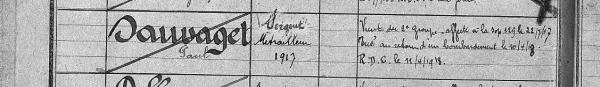 Sauvaget
Paul
Sergent
Mitrailleur
1917
Vient du 2e groupe, affecté à la Sop 129 le 22/7/17
Tué au retour d'un bombardement le 10/4/18
R.D.C. le 11/4/1918.